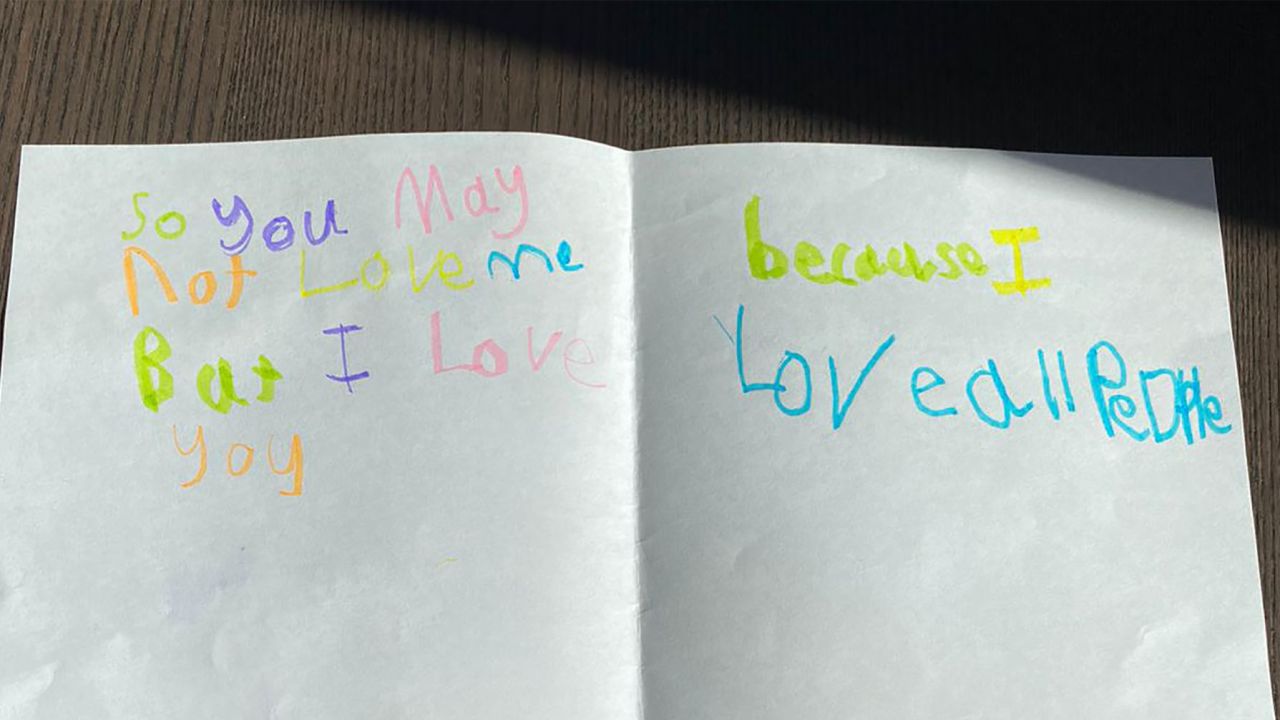 So you May
Not Love me
But I Love
you
because I
Love all PeOPle